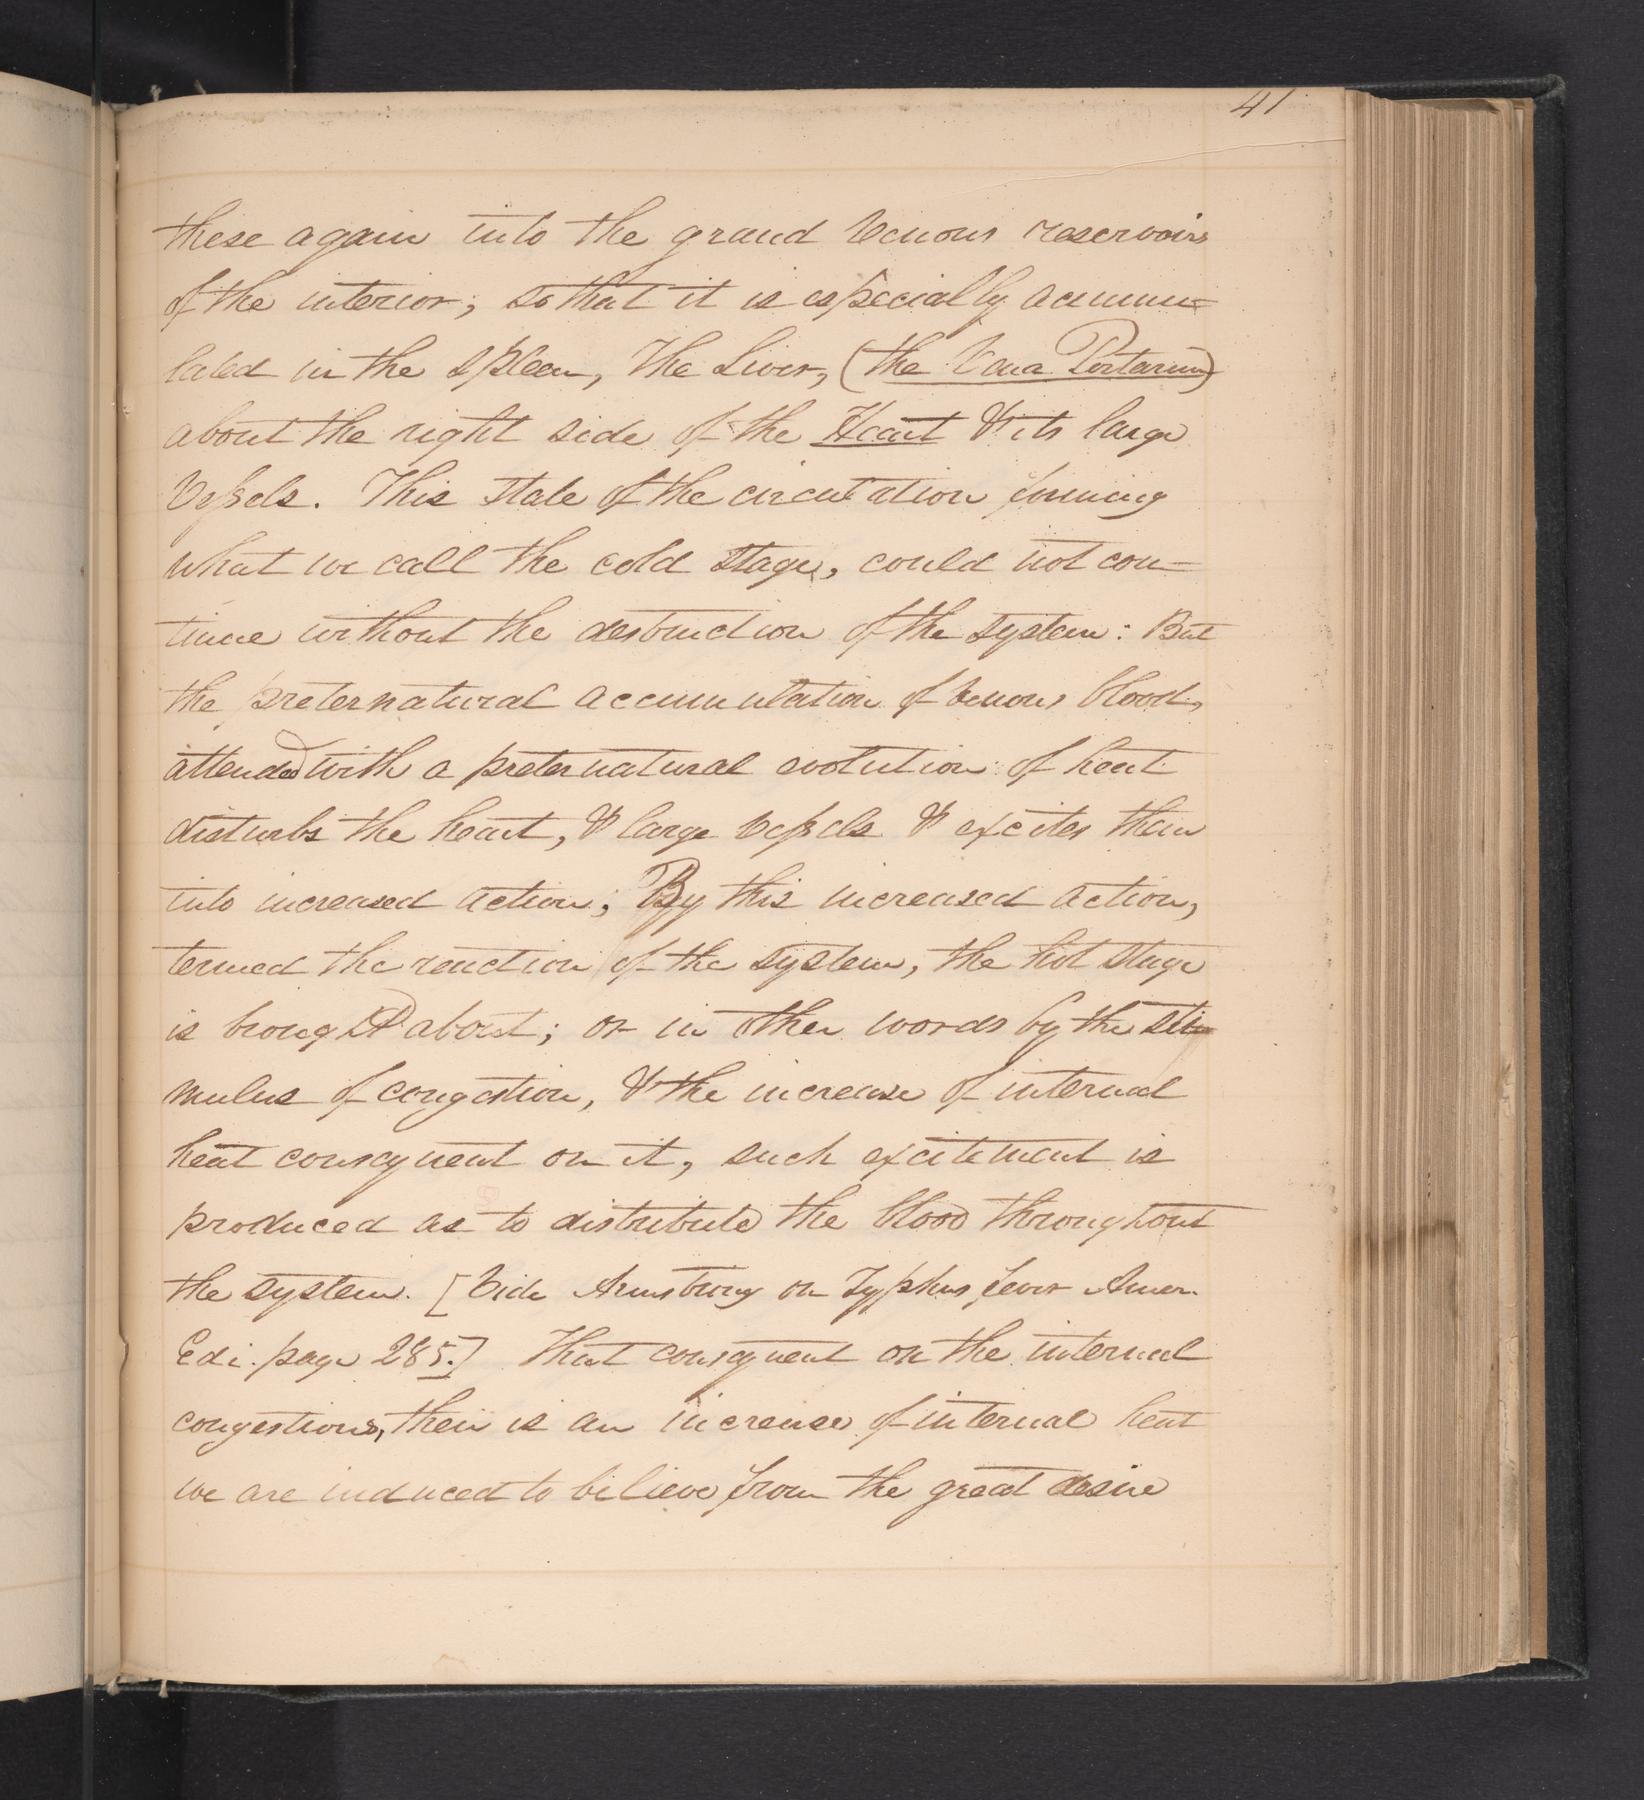 41
these again into the grand venous reservoirs
of the interior; so that it is especially accumu-
lated in the spleen, the Liver, (the Vena Portarum)
about the right side of the Heart & its large
Vessels. This state of the circulation forming
what we call the cold stage, could not con-
tinue without the destruction of the system: But
the preternatural accumulation of venous blood,
attended with a preternatural evolution of heat
disturbs the heart, & large vessels & excites them
into increased action; By this increased action,
termed the reaction of the system, the hot stage
is brought about; or in other words by the sti-
mulus of congestion, & the increase of internal
heat consequent on it, such excitement is
produced as to distribute the blood throughout
the system. [Vide Armstrong on Typhus fever Amer.
Edi. page 285.] That consequent on the internal
congestions, their is an increase of internal heat
we are induced to believe from the great desire